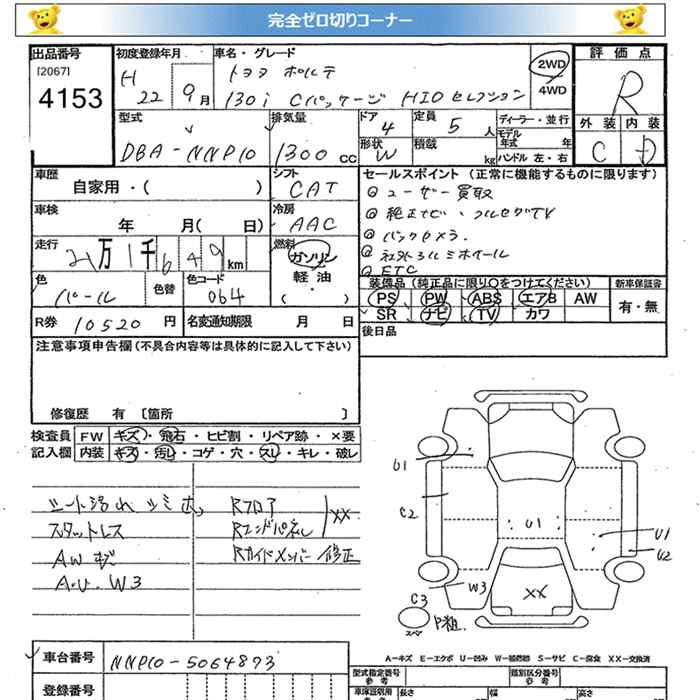 完全ゼロ切りコーナー
出品番号 初度登録年月 車名・グレード 評価点
[2067] H トヨタ ポルテ 2WD R
4153 22 9月 130i Cパッケージ HIDセレクション 4WD
型式 排気量 ドア 定員 ディーラー・並行 外装 内装
4 5人 モデル年式 年
DBA-NNP10 1300cc 形状 W 積載 kg ハンドル 左・右 C D
車歴 シフト セールスポイント (正常に機能するものに限ります)
自家用・( ) CAT ①ユーザー買取
車検 冷房 ②純正ナビ、フルセグTV
年 月( 日) AAC ③バックカメラ
走行 燃料 ④社外アルミホイール
2万1千649km ガソリン ⑤ETC
色 色替 色コード 軽油 装備品 (純正品に限り○をつけてください) 新車保証書
パール 064 ( ) PS PW ABS エアB AW 有・無
R券 10520円 名変通知期限 月 日 SR ナビ TV カワ
注意事項申告欄 (不具合内容等は具体的に記入して下さい) 後日品
修復歴 有 [箇所 ]
検査員 FW キズ・飛石・ヒビ割・リペア跡・×要
記入欄 内装 キズ・汚レ・コゲ・穴・スレ・キレ・破レ
シート汚れ ツミホ Rフロア
スタットレス Rエンドパネル XX
AWキズ Rサイドメンバー 修正
A・U、W3
U1
C2
U1
U1
U2
W3
XX
C3
スペア
車台番号 NNP10-5064873
登録番号
A-キズ E-エクボ U-凹み W-補修跡 S-サビ C-腐食 XX-交換済
型式指定番号 参考 類別区分番号 参考
車体証明用 長さ 幅 高さ